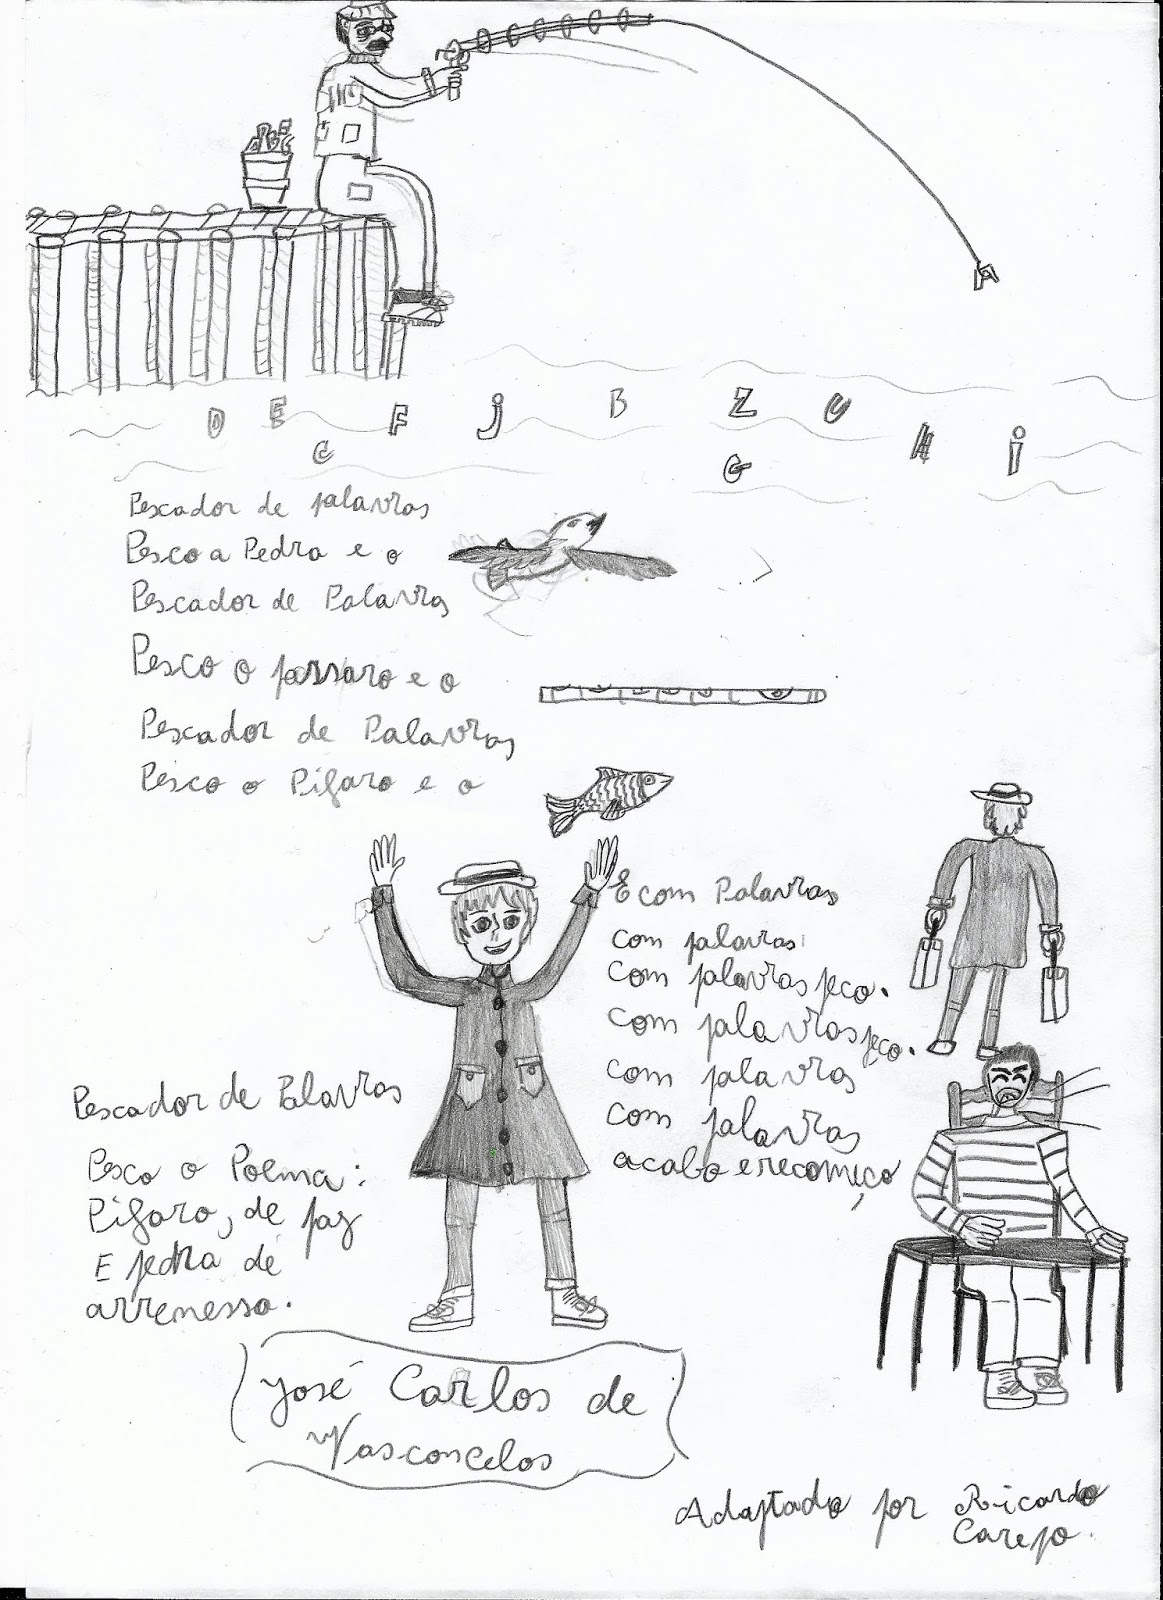 A
D E F j B Z U A i
C G
Pescador de palavras
Pesco a Pedra e o
Pescador de Palavras
Pesco o passaro e o
Pescador de Palavras
Pesco o Pifaro e o
E com Palavras
com palavras
com palavras peco.
com palavras peço.
com palavras
com palavras
acabo e recomeço
Pescador de Palavras
Pesco o Poema:
Pifaro, de paz
E pedra de
arremesso.
José Carlos de
Vasconcelos
Adaptado por Ricardo
Carejo.